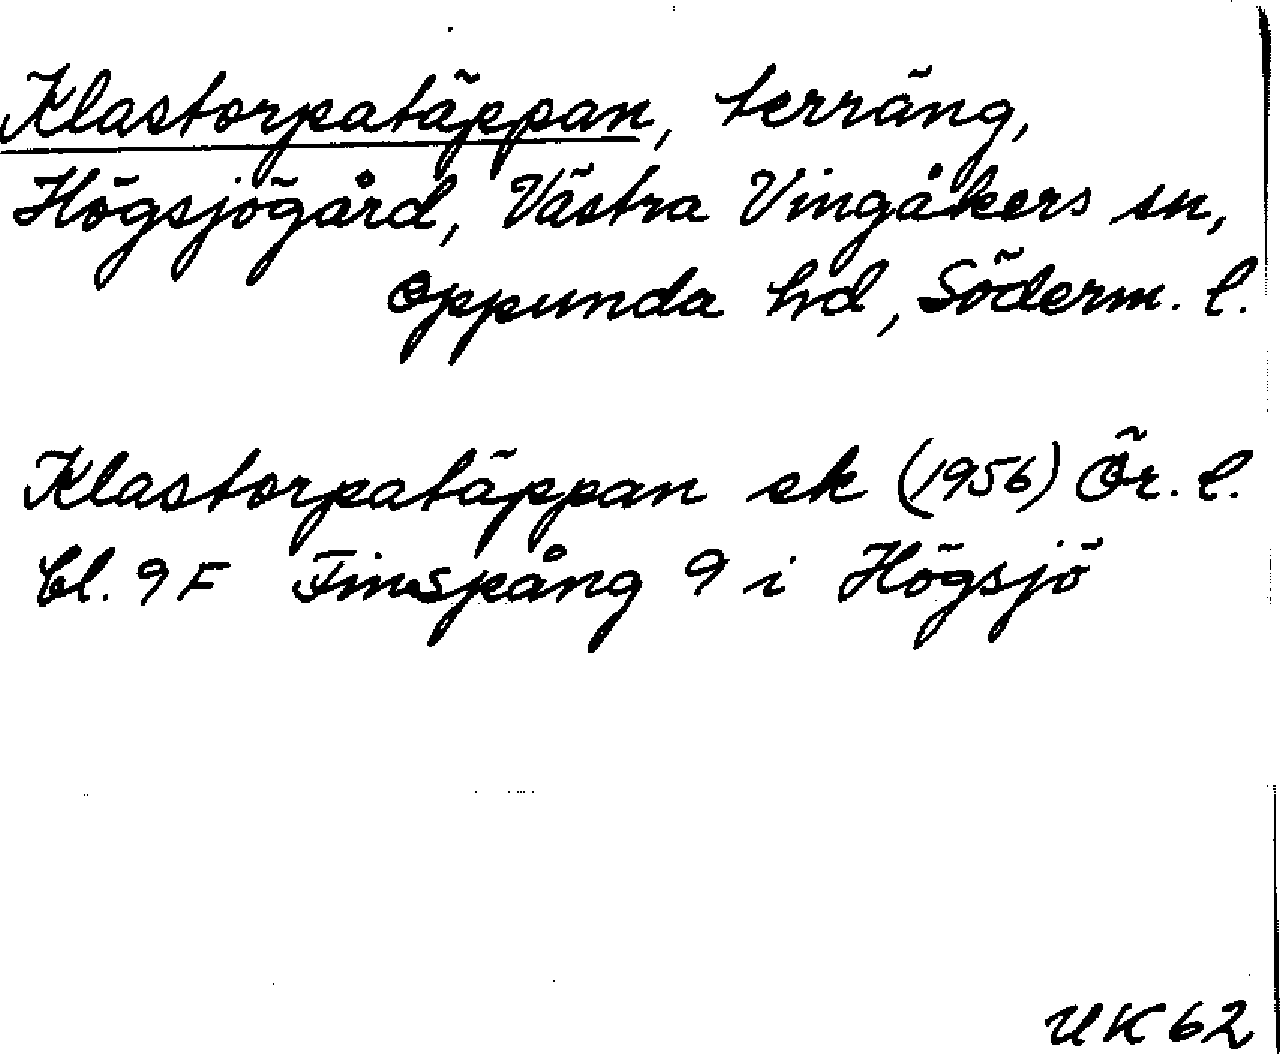 Klastorpatäppan, terräng,
Högsjögård, Västra Vingåkers sn,
Oppunda hd, Söderm. l.
Klastorpatäppan ek (1956) Ör. l.
bl. 9F Finspång 9 i Högsjö
UK 62